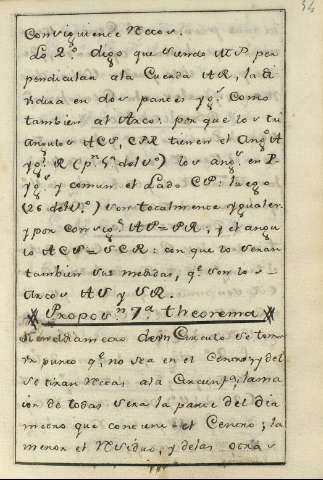 34
Consiguiente Rectos.
Lo 2º digo que siendo CP per
pendicular ala Cuerda AR, la di
vidira en dos partes yg.s Como
tambien al Arco: porque los tri
angulos ACP, CPR tienen el Angº A
yg.l R (pº 5ª del 1º) los ang.s en P
yg.s y comun el Lado CP: luego
(26 del 1º) son totalmente yguales
y por consig.te AP=PR, y el angu
lo ACP=PCR: con que lo seran
tambien sus medidas, q.e son los
Arcos AS y SR.
Propos.n 7ª theorema
Si en el diametro de un Circulo se toma
un punto q.e no sea en el Centro, y del
se tiran Rectas ala Circunf.a, la ma
ior de todas sera la parte del dia
metro que contiene el Centro; la
menor el Residuo, y delas otras